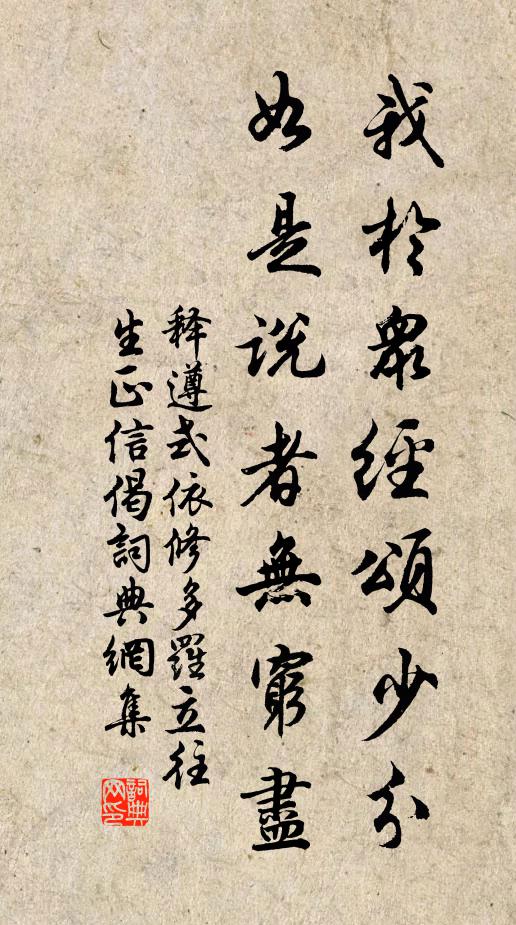 我於眾經頌少分
如是說者無窮盡
释遵式依修多羅立往
生正信偈詞典網集
詞典网印